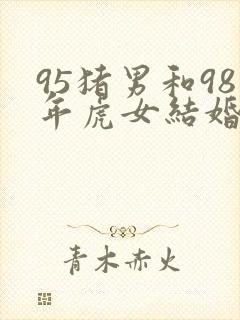 95猪男和98
年虎女結婚
青木赤火